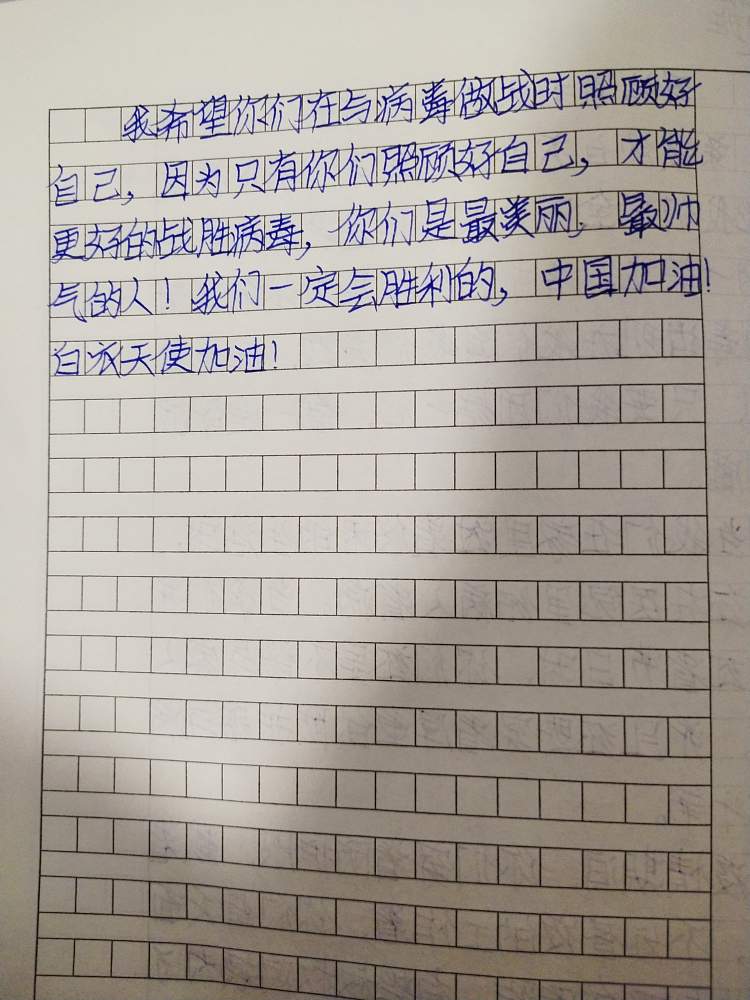 我希望你们在与病毒做战时照顾好
自己，因为只有你们照顾好自己，才能
更好的战胜病毒，你们是最美丽，最帅
气的人！我们一定会胜利的，中国加油！
白衣天使加油！